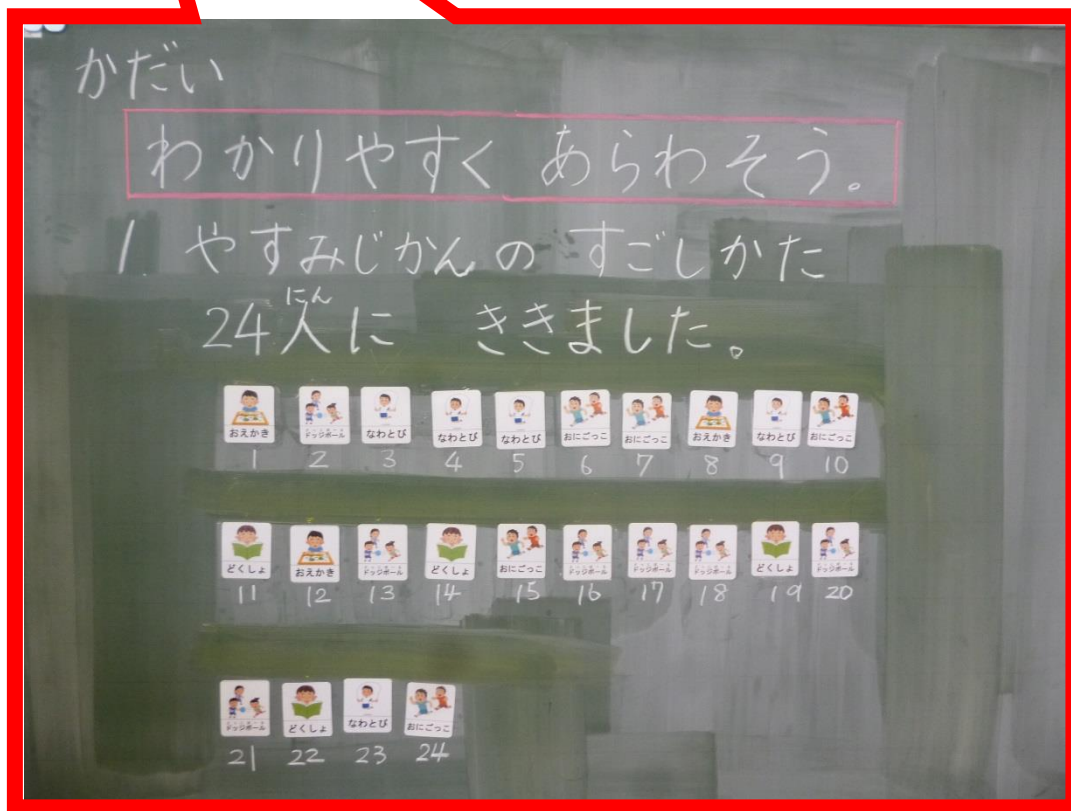 かだい
わかりやすく あらわそう。
1 やすみじかんの すごしかた
24人に ききました。
にん
おえかき ドッジボール なわとび なわとび なわとび おにごっこ おにごっこ おえかき なわとび おにごっこ
1 2 3 4 5 6 7 8 9 10
どくしょ おえかき ドッジボール どくしょ おにごっこ ドッジボール ドッジボール ドッジボール どくしょ ドッジボール
11 12 13 14 15 16 17 18 19 20
ドッジボール どくしょ なわとび おにごっこ
21 22 23 24